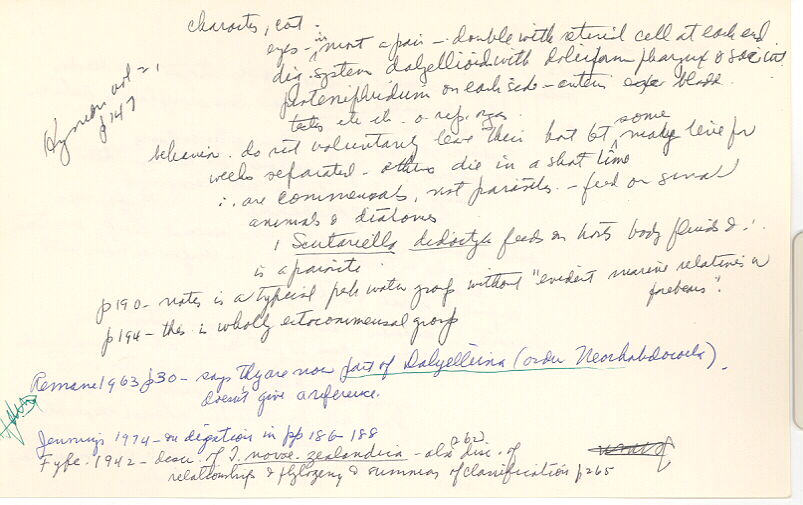 character, cont.
eyes - in most a pair - double with retinal cell at each end
dig. system dalyellioid with doliiform pharynx & sac int
protonephridium on each side - enter bladd
testes etc etc - o rep. orga
Hyman vol 2,
p 147
behavior. do not voluntarily leave their host but some may live for
weeks separated - others die in a short time
∴ are commensals, not parasites. - feed on small
animals & diatoms
1 Scutariella didactyla feeds on hosts body fluids & ∴
is a parasite.
p190 - notes is a typical fresh water group without "evident marine relatives or
forebears".
p194 - this is wholly ectocommensal group
Remane 1963 p30 - says they are now part of Dalyelliina (order Neorhabdocoela).
doesn't give a reference.
Jennings 1974 - on digestion in pp 186-188
Fyfe. 1942 - descr. of T. novae-zealandia - also disc. of
262
relationships & phylogeny & summary of classification p265